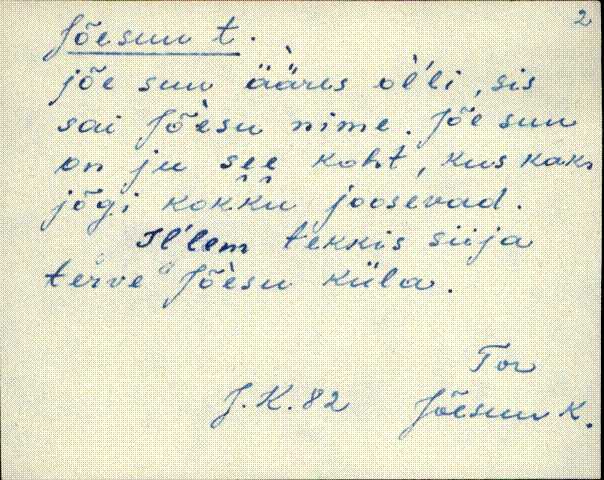 2
Jõesuu t.
jõe suu ääres ol̀'li, sis
sai Jõèsu nime. Jõe suu
on ju see koht, kus kaks
jõgi kokku joosevad.
Il'lem tekkis siija
terve Jõèsu küla.
Tor
J.K. 82 Jõesuu k.